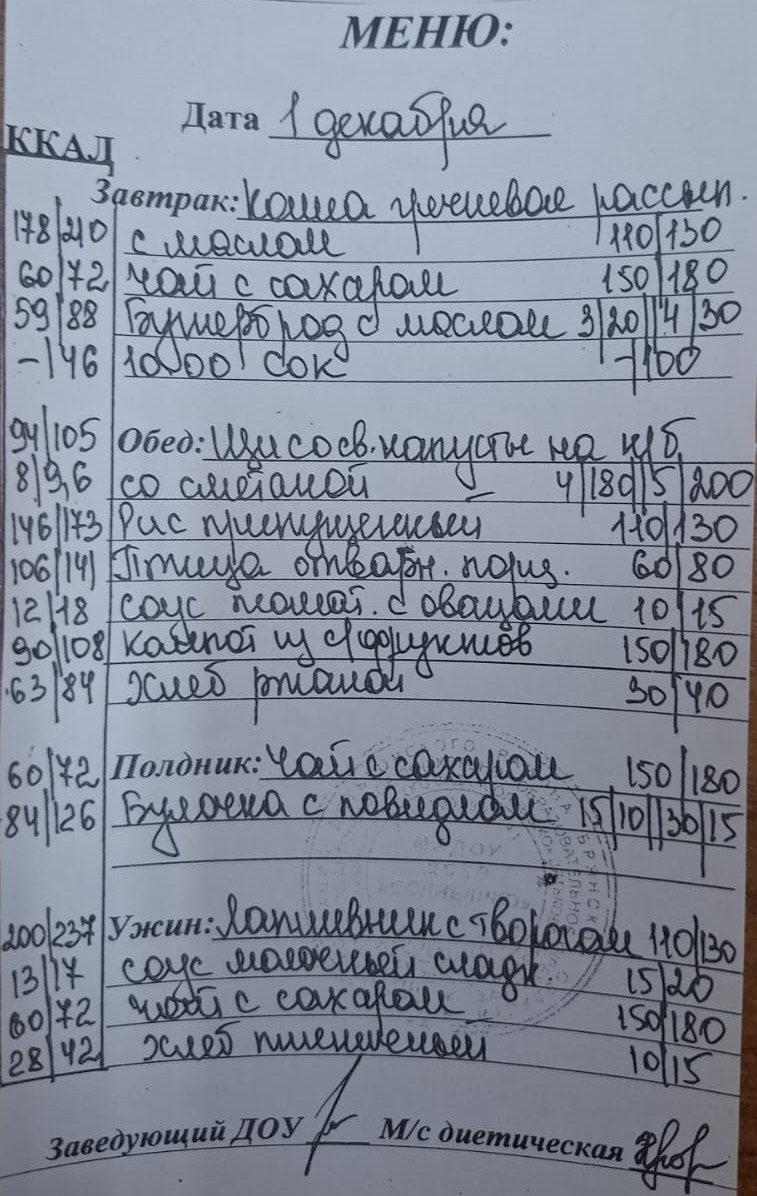 МЕНЮ:
Дата 1 декабря
ККАД
Завтрак: Каша гречневая рассып.
178/210 с маслом 110/130
60/72 Чай с сахаром 150/180
59/88 Бутерброд с маслом 3/20//4/30
-/46 10.00 Сок -/100
94/105 Обед: Щи со св. капусты на к/б
8/9,6 со сметаной - 4/180/5/200
146/173 Рис припущенный 110/130
106/141 Птица отварн. порц. 60/80
12/18 Соус томат. с овощами 10/15
90/108 Компот из с/фруктов 150/180
63/84 Хлеб ржаной 30/40
60/72 Полдник: Чай с сахаром 150/180
84/126 Булочка с повидлом 15/10//30/15
200/237 Ужин: Лапшевник с творогом 110/130
13/17 Соус молочный сладк. 15/20
60/72 Чай с сахаром 150/180
28/42 Хлеб пшеничный 10/15
Заведующий ДОУ М/с диетическая